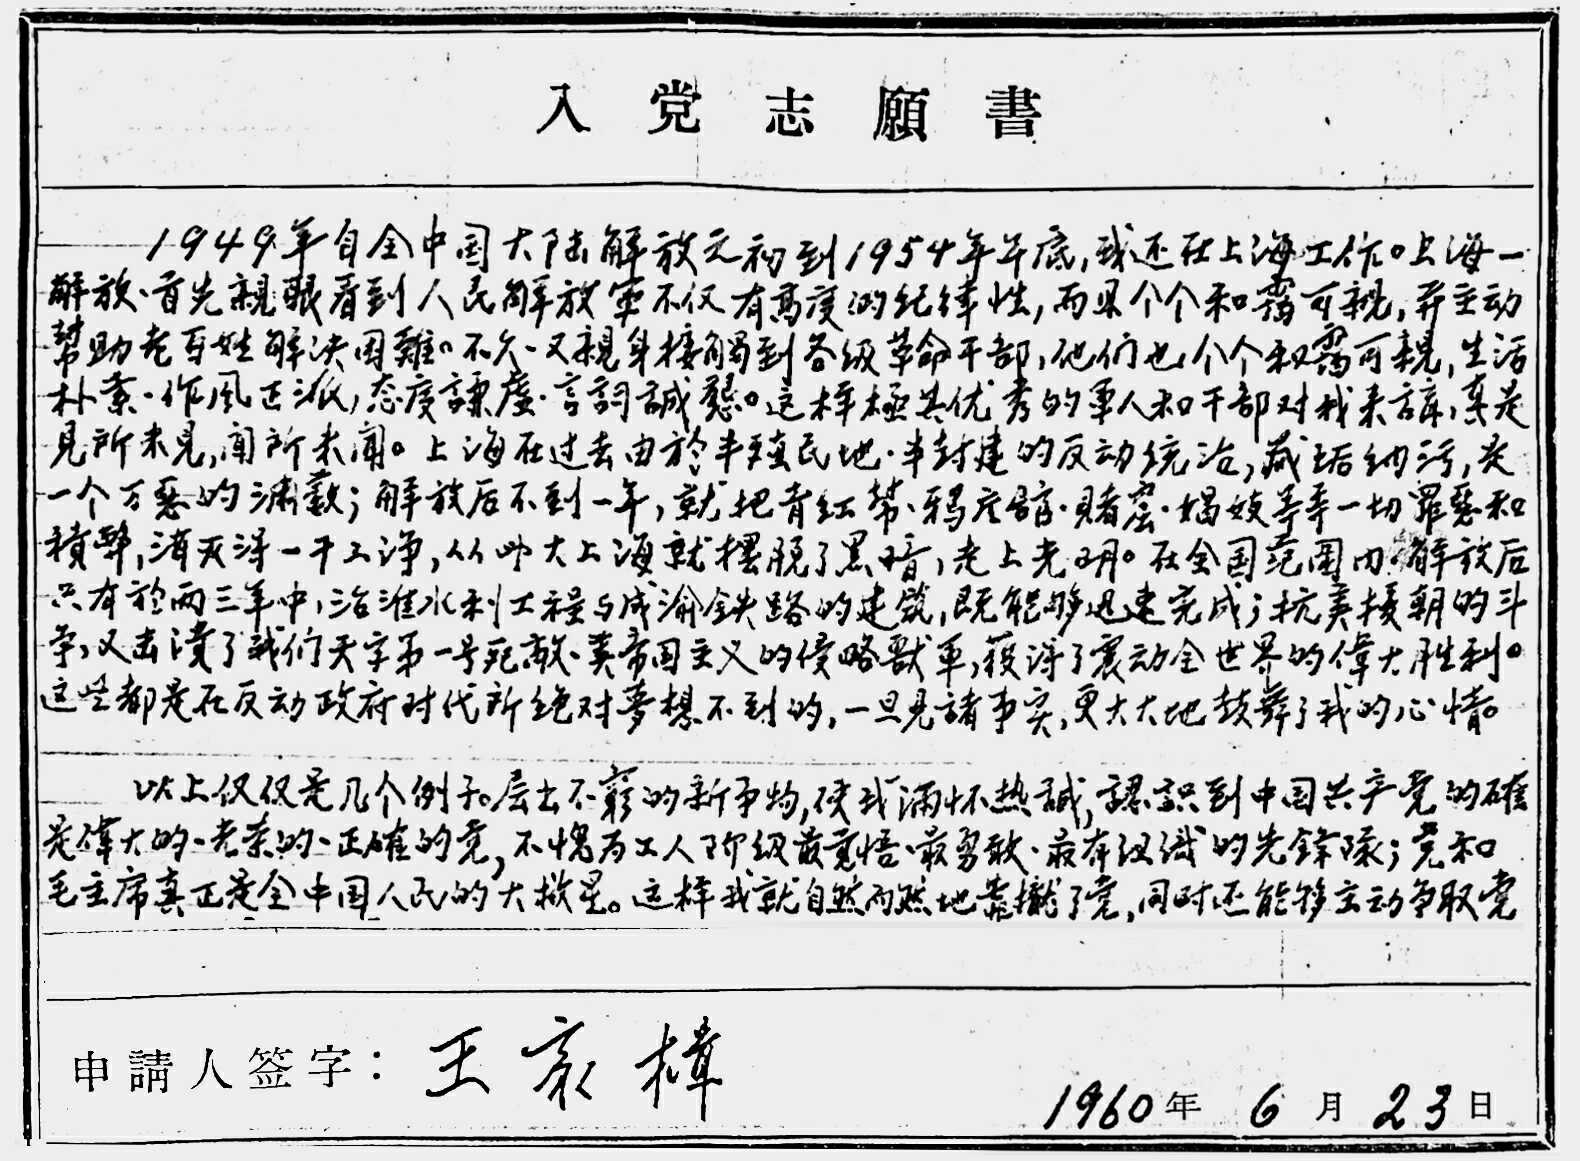 入党志願書
1949年自全中国大陆解放之初到1954年年底,我还在上海工作。上海一
解放、首先親眼看到人民解放军不仅有高度的纪律性,而且个个和靄可親,并主动
幫助老百姓解决困難。不久、又親身接觸到各级革命干部,他们也个个和靄可親,生活
朴素、作风正派,态度謙虚、言詞誠懇。这样極其优秀的军人和干部对我来講,真是
見所未見,闻所未闻。上海在过去由於半殖民地、半封建的反动统治,藏垢纳污,是
一个万惡的渊薮;解放后不到一年,就把青红幫、鸦片館、赌窟、娼妓等等一切罪惡和
積弊,消灭得一干二净,从此大上海就摆脱了黑暗,走上光明。在全国范围内、解放后
只有於两三年中,治淮水利工程与成渝鉄路的建筑,既能够迅速完成;抗美援朝的斗
争,又击溃了我们天字第一号死敵、美帝国主义的侵略獸軍,獲得了震动全世界的偉大胜利。
这些都是在反动政府时代所绝对夢想不到的,一旦見諸事实,更大大地鼓舞了我的心情。
以上仅仅是几个例子。层出不窮的新事物,使我满怀热誠,認識到中国共产党的確
是偉大的、光荣的、正確的党,不愧为工人阶级最覚悟、最勇敢、最有组織的先鋒隊;党和
毛主席真正是全中国人民的大救星。这样我就自然而然地靠攏了党,同时还能够主动争取党
申請人签字:王家楫
1960年 6月23日